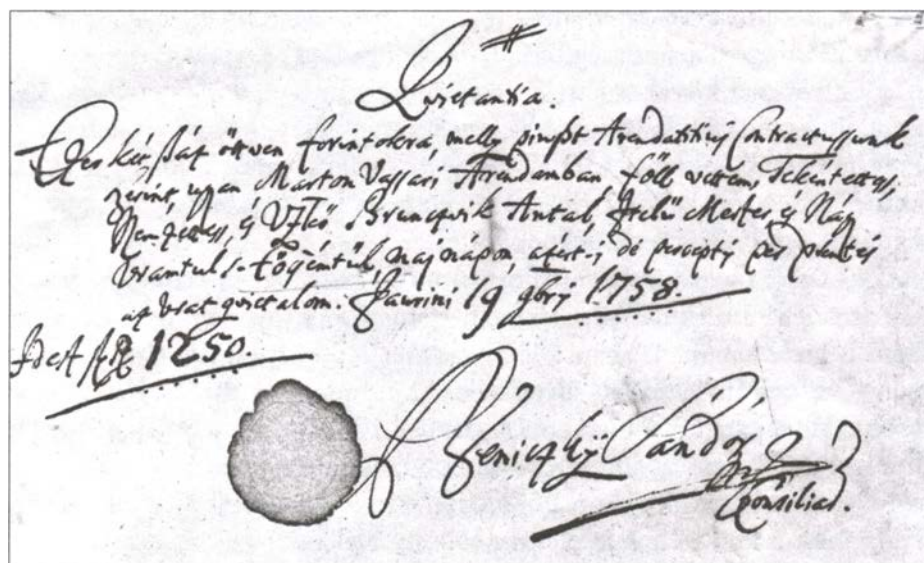 Quietantia.
Ezer két száz ötven forintokrá, melly pénzt Arendatitius Contractussunk
szerint, ugyan Marton Vassari Arendamban föll vettem, Tekéntettes,
Nemzettess, és Vitéz Brunczvik Antal, Itélü Mester és Nagy
Uramtul s-Eöcsémtül, mai nápon, azért-is de perceptis per praesentes
az Urat quietalom. Jaurini 19 9bris 1758.
Id est fR 1250.
Beniczkÿ Sandor
Consiliar.